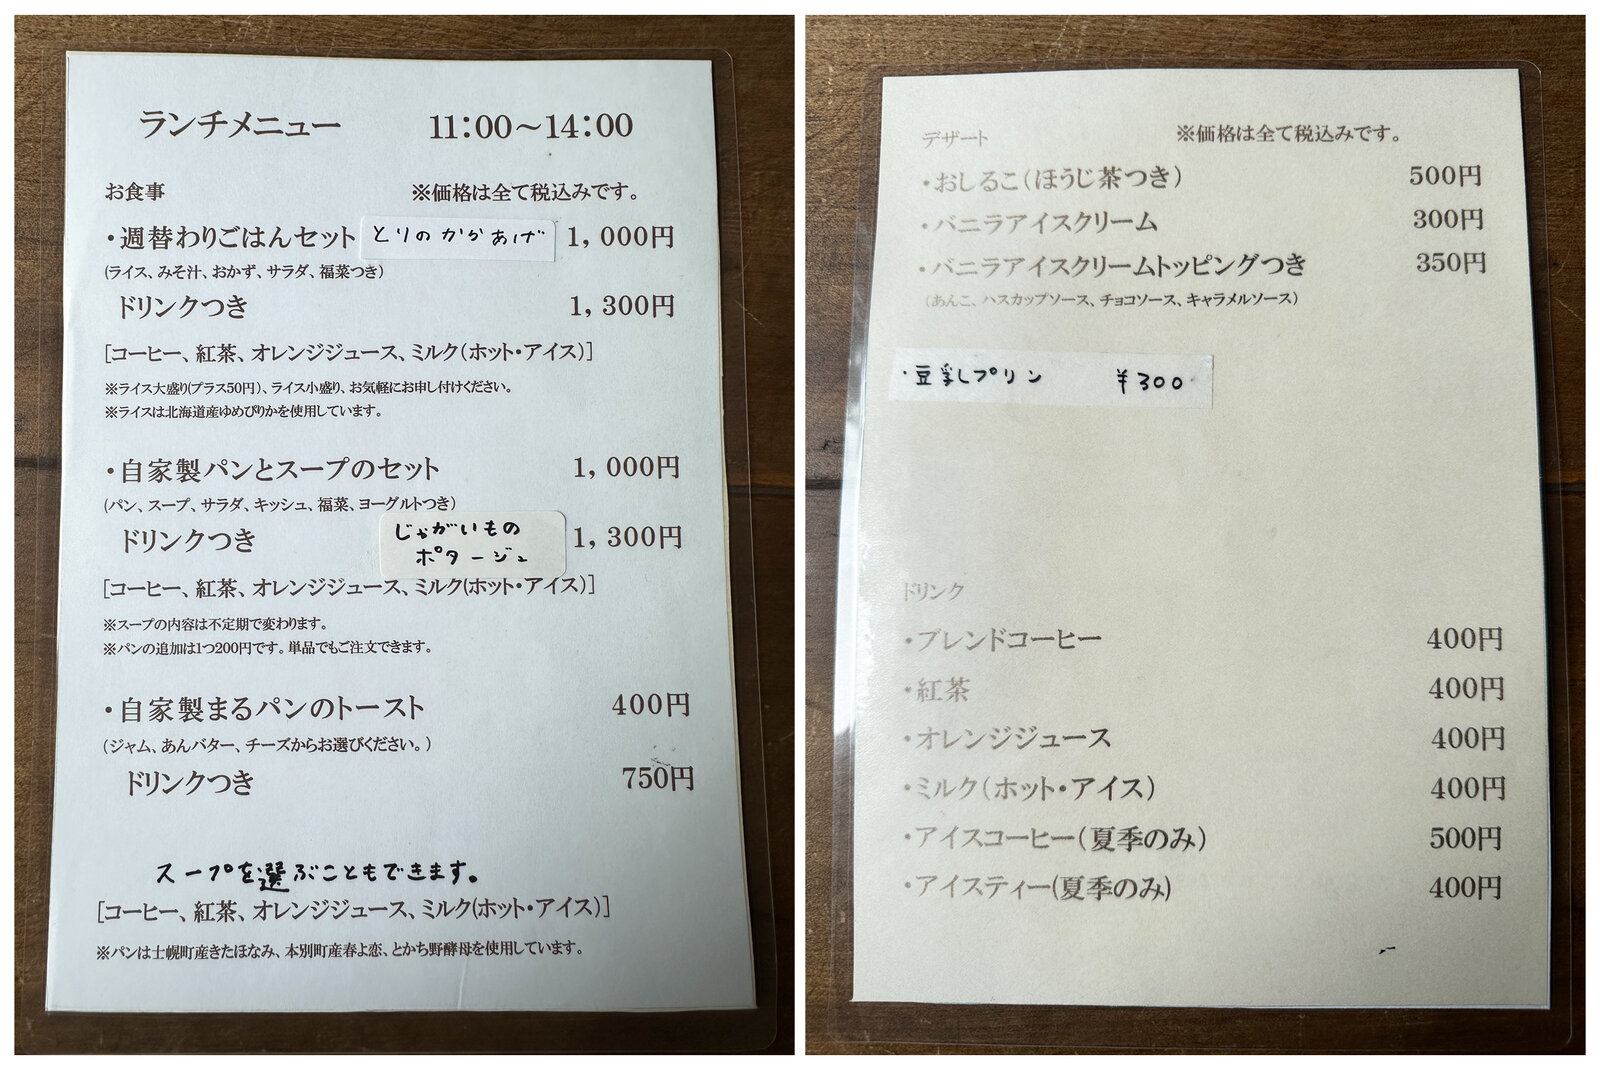 ランチメニュー 11:00～14:00
お食事 ※価格は全て税込みです。
・週替わりごはんセット とりのからあげ 1,000円
(ライス、みそ汁、おかず、サラダ、福菜つき)
ドリンクつき 1,300円
[コーヒー、紅茶、オレンジジュース、ミルク(ホット・アイス)]
※ライス大盛り(プラス50円)、ライス小盛り、お気軽にお申し付けください。
※ライスは北海道産ゆめぴりかを使用しています。
・自家製パンとスープのセット 1,000円
(パン、スープ、サラダ、キッシュ、福菜、ヨーグルトつき)
ドリンクつき じゃがいもの 1,300円
ポタージュ
[コーヒー、紅茶、オレンジジュース、ミルク(ホット・アイス)]
※スープの内容は不定期で変わります。
※パンの追加は1つ200円です。単品でもご注文できます。
・自家製まるパンのトースト 400円
(ジャム、あんバター、チーズからお選びください。)
ドリンクつき 750円
スープを選ぶこともできます。
[コーヒー、紅茶、オレンジジュース、ミルク(ホット・アイス)]
※パンは士幌町産きたほなみ、本別町産春よ恋、とかち野酵母を使用しています。
デザート ※価格は全て税込みです。
・おしるこ(ほうじ茶つき) 500円
・バニラアイスクリーム 300円
・バニラアイスクリームトッピングつき 350円
(あんこ、ハスカップソース、チョコソース、キャラメルソース)
・豆乳プリン ¥300
ドリンク
・ブレンドコーヒー 400円
・紅茶 400円
・オレンジジュース 400円
・ミルク(ホット・アイス) 400円
・アイスコーヒー(夏季のみ) 500円
・アイスティー(夏季のみ) 400円